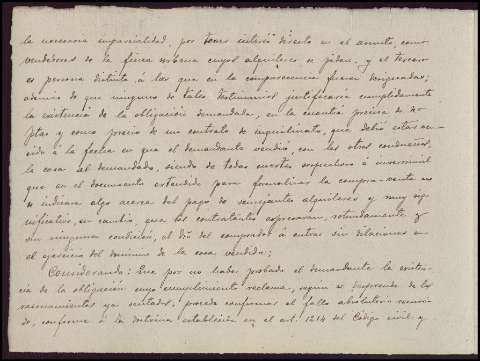 la necesaria imparcialidad, por tener interés directo en el asunto, como
vendedoras de la finca urbana cuyos alquileres se piden, y el tercero
es persona distinta á las que en la comparecencia fueron designadas;
además de que ninguno de tales testimonios justificaría cumplidamente
la existencia de la obligación demandada, en la cuantía precisa de
ptas y como precio de un contrato de inquilinato, que debió estar
á la fecha en que el demandante vendió con los otros condueños,
la casa al demandado, siendo de todas suertes sospechoso é inverosímil
que en el documento extendido para formalizar la compra-venta no
se indicara algo acerca del pago de semejantes alquileres y muy sig-
nificativo, en cambio, que los contratantes expresaran, rotundamente y
sin ninguna condición, el del comprador á entrar sin dilaciones en
el ejercicio del dominio de la casa vendida;
Considerando: Que por no haber probado el demandante la existen-
cia de la obligación cuyo cumplimiento reclama, según se desprende de los
razonamientos ya sentados, procede confirmar el fallo absolutorio recurri-
do, conforme á la doctrina establecida en el art. 1214 del Código civil y